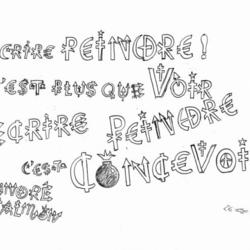 CRIRE PEINDRE !
C'EST PLUS QUE VOIR
ECRIRE PEINDRE
C'EST CONCEVOI